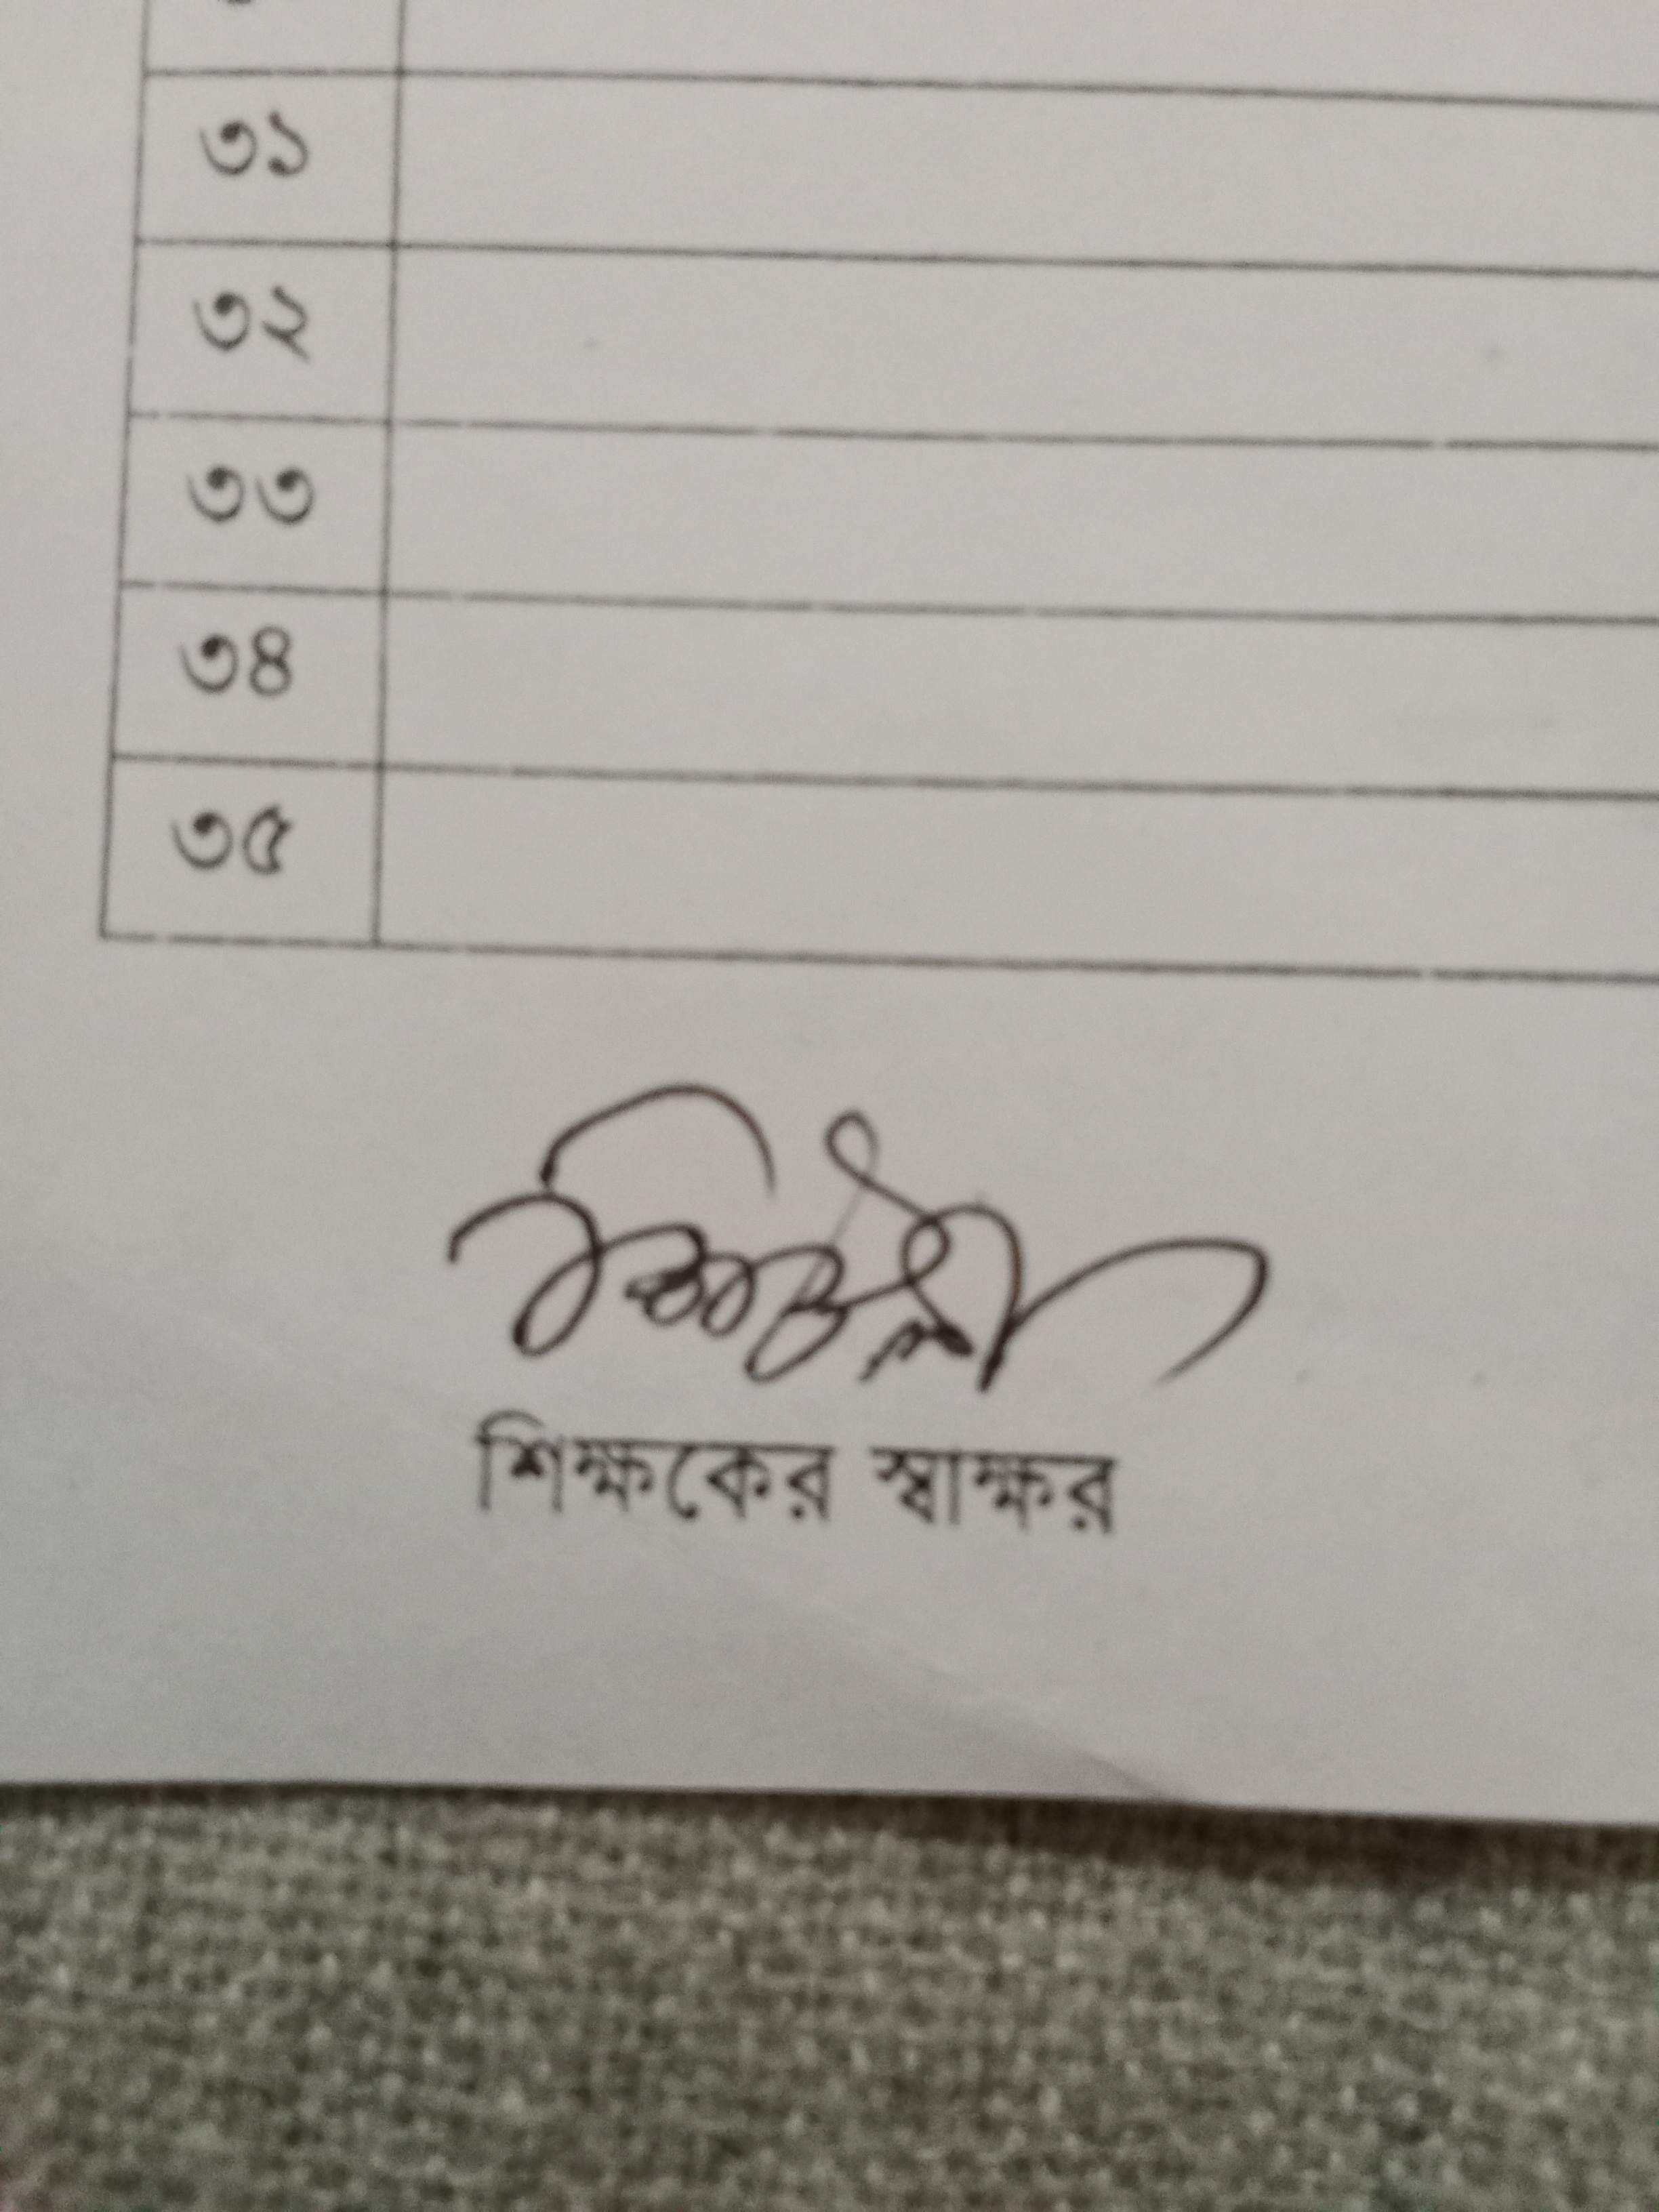 ৩১
৩২
৩৩
৩৪
৩৫
শিক্ষকের স্বাক্ষর